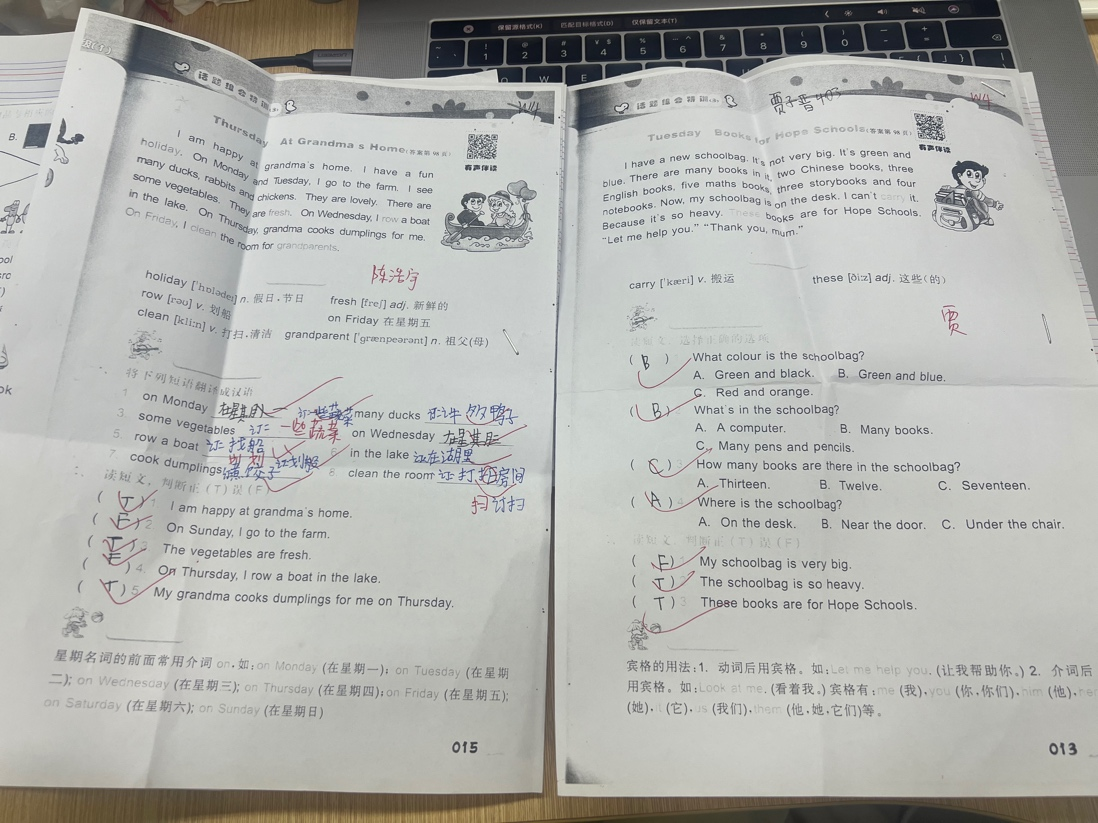 保留源格式(K) 匹配目标格式(D) 仅保留文本(T)
话题组合特训
W4
Thursday At Grandma's Home(答案第 98 页)
有声伴读
I am happy at grandma's home. I have a fun
holiday. On Monday and Tuesday, I go to the farm. I see
many ducks, rabbits and chickens. They are lovely. There are
some vegetables. They are fresh. On Wednesday, I row a boat
in the lake. On Thursday, grandma cooks dumplings for me.
On Friday, I clean the room for grandparents.
陈浩宇
holiday ['hɒlədeɪ] n. 假日,节日 fresh [freʃ] adj. 新鲜的
row [rəʊ] v. 划船 on Friday 在星期五
clean [kliːn] v. 打扫,清洁 grandparent ['grænpeərənt] n. 祖父(母)
一、将下列短语翻译成汉语
1 on Monday many ducks
3. some vegetables 一些蔬菜 on Wednesday
5. row a boat in the lake 订在湖里
7. cook dumplings 8 clean the room
扫订扫
二、读短文,判断正(T)误(F)
(T) 1. I am happy at grandma's home.
(F) 2. On Sunday, I go to the farm.
(T) 3 The vegetables are fresh.
(F) 4. On Thursday, I row a boat in the lake.
(T) 5. My grandma cooks dumplings for me on Thursday.
星期名词的前面常用介词 on,如:on Monday (在星期一); on Tuesday (在星期
二); on Wednesday (在星期三); on Thursday (在星期四); on Friday (在星期五);
on Saturday (在星期六); on Sunday (在星期日)
015
话题组合特训
贾子晋403
W4
Tuesday Books for Hope Schools(答案第 98 页)
有声伴读
I have a new schoolbag. It's not very big. It's green and
blue. There are many books in it, two Chinese books, three
English books, five maths books, three storybooks and four
notebooks. Now, my schoolbag is on the desk. I can't carry it.
Because it's so heavy. These books are for Hope Schools.
"Let me help you." "Thank you, mum."
carry ['kæri] v. 搬运 these [ðiːz] adj. 这些(的)
贾
一、读短文,选择正确的选项
(B) What colour is the schoolbag?
A. Green and black. B. Green and blue.
C. Red and orange.
(B) What's in the schoolbag?
A. A computer. B. Many books.
C. Many pens and pencils.
(C) 3 How many books are there in the schoolbag?
A. Thirteen. B. Twelve. C. Seventeen.
(A) 4 Where is the schoolbag?
A. On the desk. B. Near the door. C. Under the chair.
二、读短文,判断正(T)误(F)
(F) My schoolbag is very big.
(T) 2 The schoolbag is so heavy.
(T) 3 These books are for Hope Schools.
宾格的用法:1. 动词后用宾格。如:Let me help you. (让我帮助你。) 2. 介词后
用宾格。如:Look at me. (看着我。) 宾格有:me (我),you (你,你们),him (他),her
(她),it (它),us (我们),them (他,她,它们)等。
013